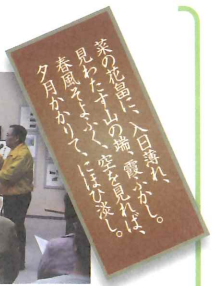 菜の花畠に、入日薄れ、
見わたす山の端、霞ふかし。
春風そよふく、空を見れば、
夕月かかりて、にほひ淡し。